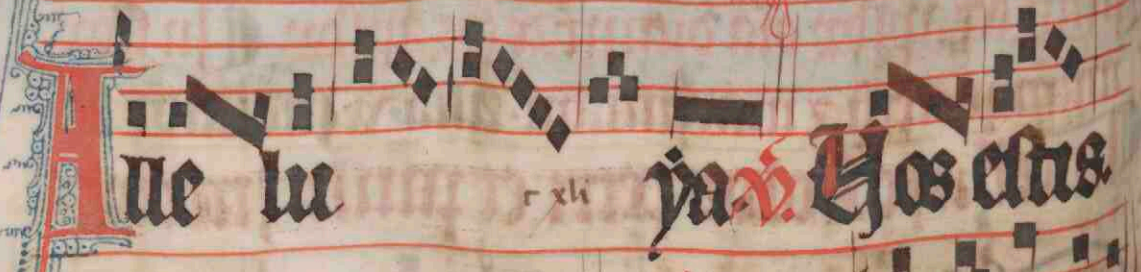 Alle lu c xli ÿa. V̓. Vos estis.